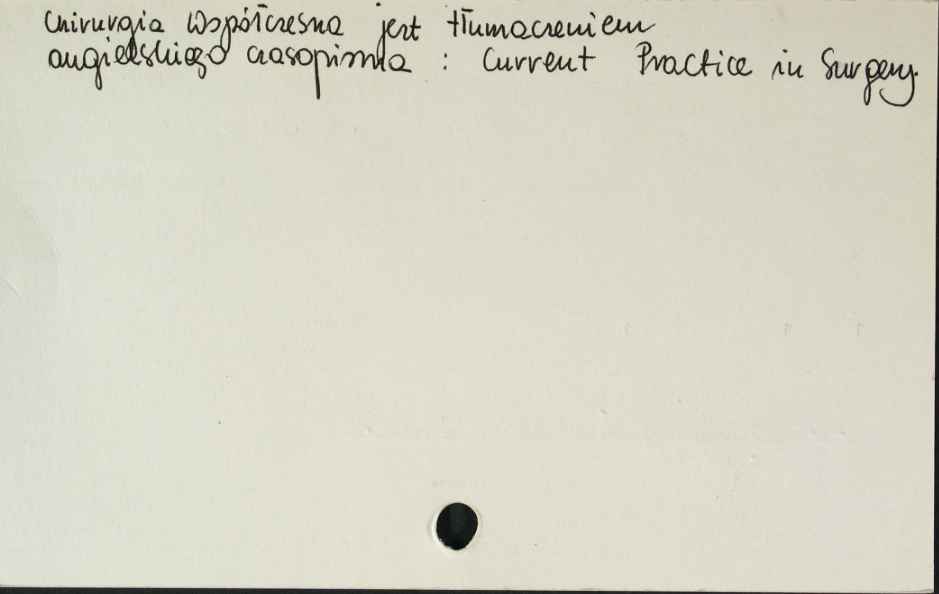 Chirurgia Współczesna jest tłumaczeniem
angielskiego czasopisma : Current Practice in Surgery.